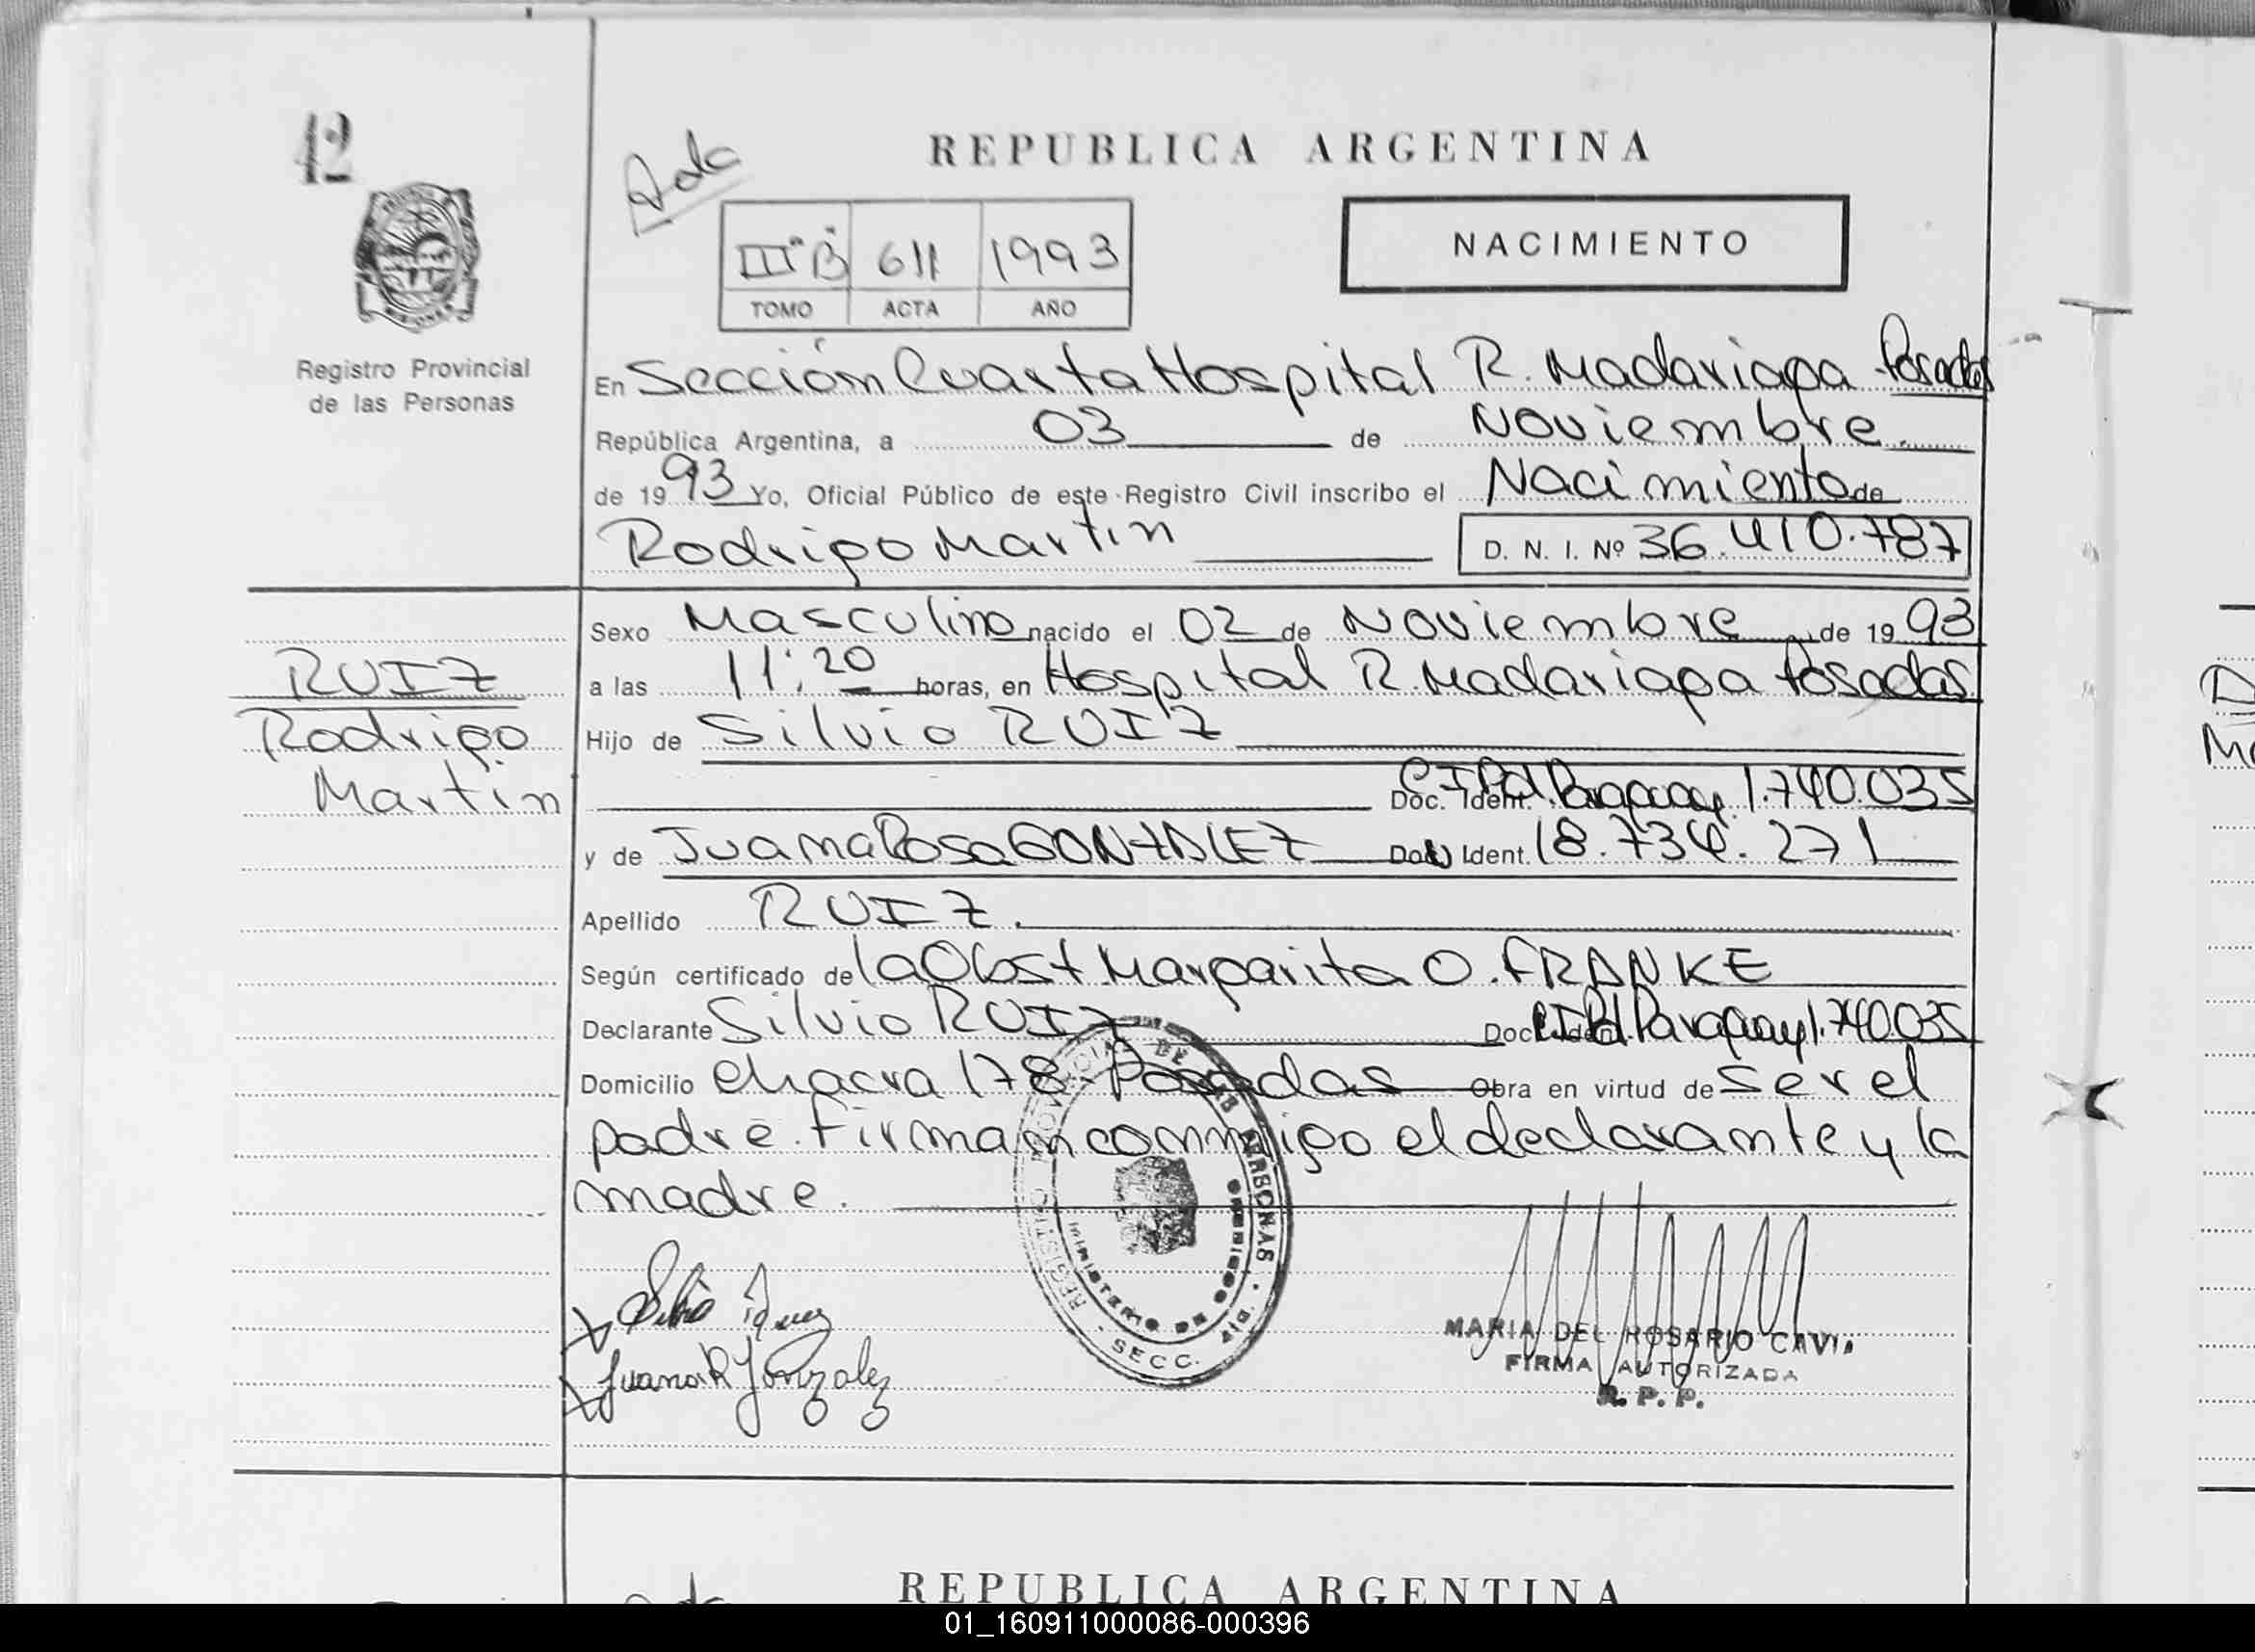 42
Dda
REPUBLICA ARGENTINA
IIIº B 611 1993
TOMO ACTA AÑO
NACIMIENTO
MISIONES
Registro Provincial
de las Personas
En Sección Cuarta Hospital R. Madariaga Posadas
República Argentina, a 03 de Noviembre
de 1993 Yo, Oficial Público de este Registro Civil inscribo el Nacimiento de
Rodrigo Martin D. N. I. Nº 36.410.787
Sexo Masculino nacido el 02 de Noviembre de 1993
RUIZ a las 11:20 horas, en Hospital R. Madariaga Posadas
Rodrigo Hijo de Silvio RUIZ
Martin Doc. Ident. C.I.Pol. Paraguay 1.740.035
y de Juana Rosa GONZALEZ Doc. Ident. 18.734.271
Apellido RUIZ.
Según certificado de la Obst. Margarita O. FRANKE
Declarante Silvio RUIZ Doc. Ident. C.I.Pol. Paraguay 1.740.035
Domicilio Chacra 178 - Posadas Obra en virtud de ser el
padre. Firman conmigo el declarante y la
madre.
REGISTRO PROVINCIAL DE LAS PERSONAS
MINISTERIO DE GOBIERNO
SECC. 4ta
Juana R Gonzalez
MARIA DEL ROSARIO CAVIA
FIRMA AUTORIZADA
R. P. P.
REPUBLICA ARGENTINA
01_160911000086-000396